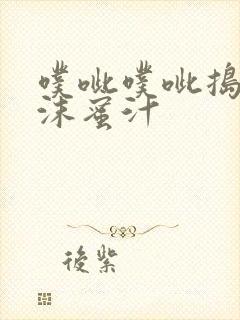 噗呲噗呲搗
沫蜜汁
後紫